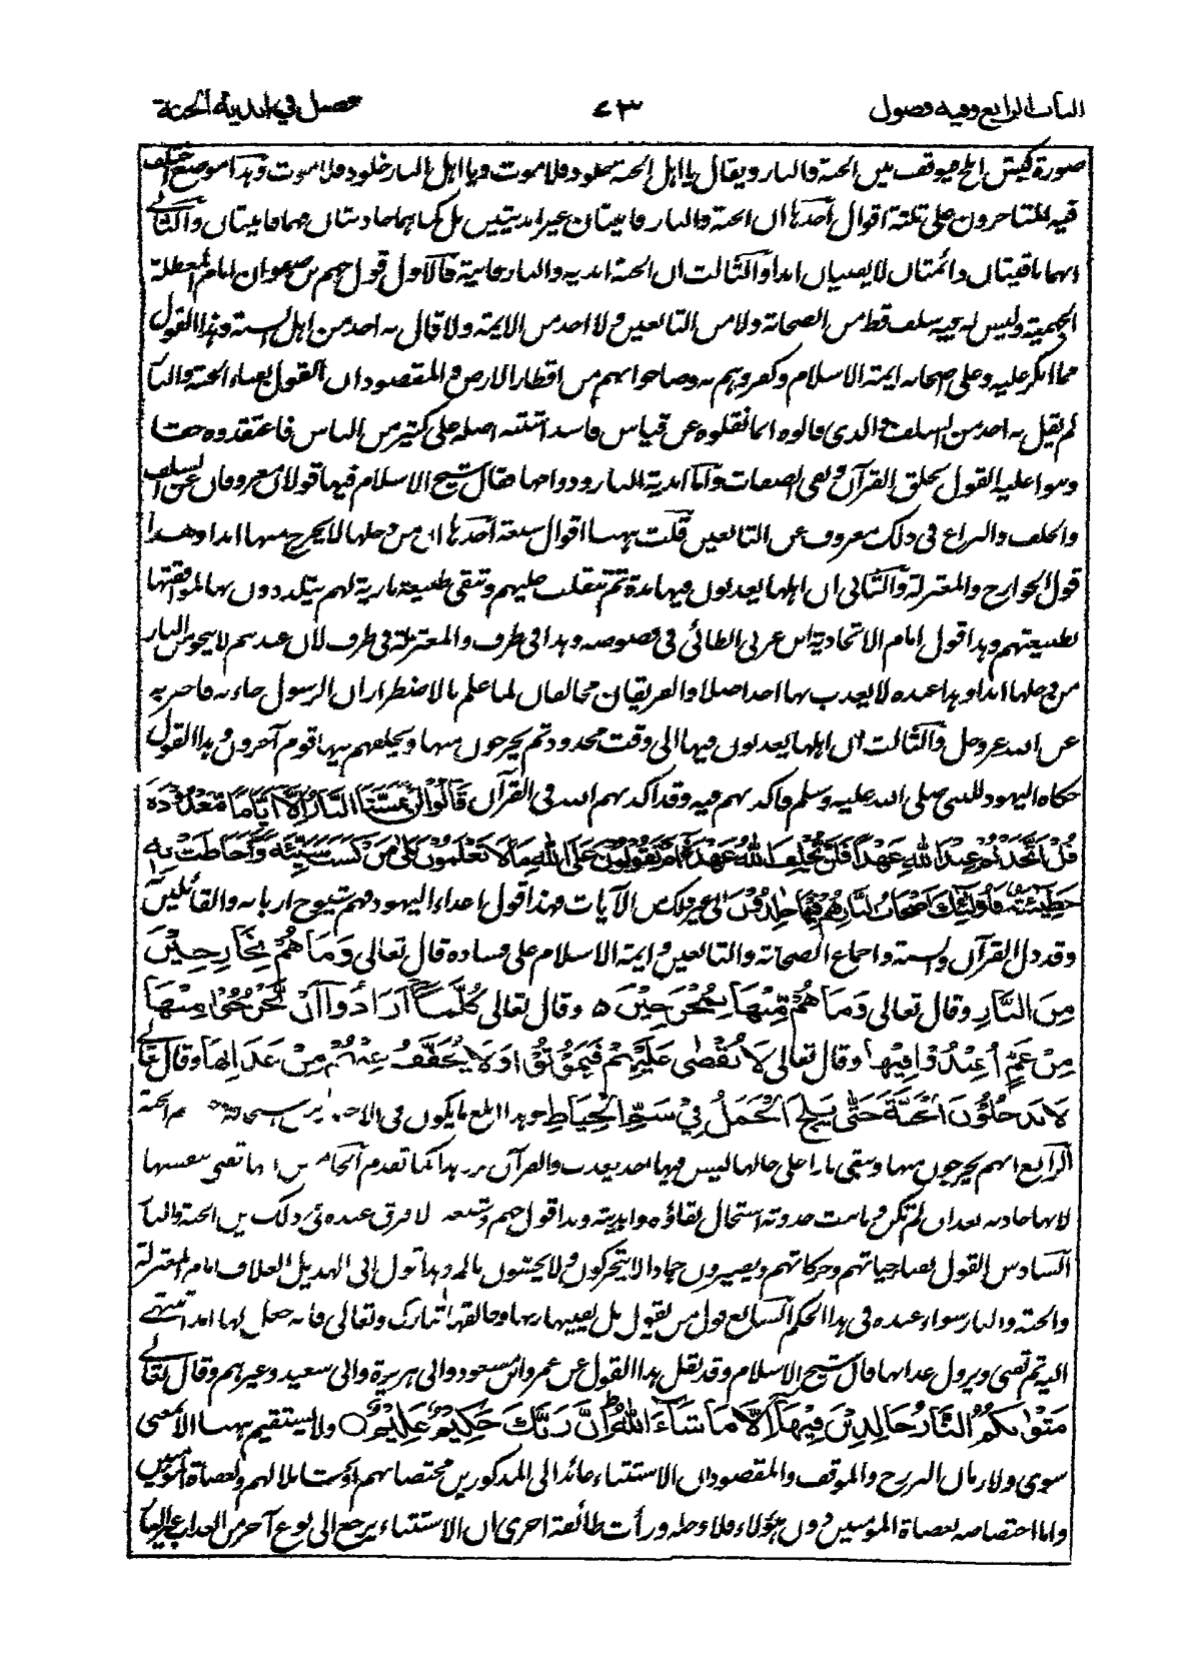 الباب الرابع وفيه فصول ٧٣ فصل في ابدية الجنة
صورة كبش املح فيوقف بين الجنة والنار ويقال يا اهل الجنة خلود فلا موت ويا اهل النار خلود فلا موت وهذا موضع اختلف
فيه المتاخرون على ثلثة اقوال أحدها ان الجنة والنار فانيتان غير ابديتين بل كما هما حادثتان فهما فانيتان والثاني
انهما باقيتان دائمتان لا يفنيان ابدا والثالث ان الجنة ابدية والنار فانية فالاول قول جهم بن صفوان امام المعطلة
الجهمية وليس له فيه سلف قط من الصحابة ولا من التابعين ولا احد من الايمة ولا قال به احد من اهل السنة وهذا القول
مما انكر عليه وعلى اصحابه ايمة الاسلام وكفروهم به وصاحوا بهم من اقطار الارض والمقصود ان القول بفناء الجنة والنار
لم يقل به احد من السلف والذي قالوه انما نقلوه عن قياس فاسد اشتبه اصله على كثير من الناس فاعتقدوه حقا
وبنوا عليه القول بخلق القرآن ونفي الصفات وأما ابدية النار ودوامها فقال شيخ الاسلام فيها قولان معروفان عن السلف
والخلف والنزاع في ذلك معروف عن التابعين قلت ههنا اقوال سبعة أحدها ان من دخلها لا يخرج منها ابدا وهذا
قول الخوارج والمعتزلة والثاني ان اهلها يعذبون فيها مدة ثم تنقلب عليهم وتبقى طبيعة نارية لهم يتلذذون بها لموافقتها
لطبيعتهم وهذا قول امام الاتحادية ابن عربي الطائي في فصوصه وهذا في طرف والمعتزلة في طرف لان عندهم لا يخرج من النار
من دخلها ابدا وهذا عنده لا يعذب بها احد اصلا والفريقان مخالفان لما علم بالاضطرار ان الرسول جاء به فاخبر به
عن الله عز وجل والثالث ان اهلها يعذبون فيها الى وقت محدود ثم يخرجون منها ويخلفهم فيها قوم آخرون وهذا القول
حكاه اليهود للنبي صلى الله عليه وسلم فاكذبهم فيه وقد اكذبهم الله في القرآن قَالُوْا لَنْ تَمَسَّنَا النَّارُ اِلَّا اَيَّامًا مَّعْدُوْدَةً
قُلْ اَتَّخَذْتُمْ عِنْدَ اللهِ عَهْدًا فَلَنْ يُّخْلِفَ اللهُ عَهْدَهٗ اَمْ تَقُوْلُوْنَ عَلَى اللهِ مَا لَا تَعْلَمُوْنَ بَلٰى مَنْ كَسَبَ سَيِّئَةً وَّاَحَاطَتْ بِهٖ
خَطِيْئَتُهٗ فَاُولٰئِكَ اَصْحَابُ النَّارِ هُمْ فِيْهَا خَالِدُوْنَ الى غير ذلك من الآيات فهذا قول اعداء اليهود فهم شيوخ اربابه والقائلين
وقد دل القرآن والسنة واجماع الصحابة والتابعين وايمة الاسلام على فساده قال تعالى وَمَا هُمْ بِخَارِجِيْنَ
مِنَ النَّارِ وقال تعالى وَمَا هُمْ مِّنْهَا بِمُخْرَجِيْنَ ه وقال تعالى كُلَّمَا اَرَادُوْا اَنْ يَّخْرُجُوْا مِنْهَا
مِنْ غَمٍّ اُعِيْدُوْا فِيْهَا وقال تعالى لَا يُقْضٰى عَلَيْهِمْ فَيَمُوْتُوْا وَلَا يُخَفَّفُ عَنْهُمْ مِنْ عَذَابِهَا وقال تعالى
لَا يَدْخُلُوْنَ الْجَنَّةَ حَتّٰى يَلِجَ الْجَمَلُ فِيْ سَمِّ الْخِيَاطِ وهذا ابلغ ما يكون في الجنة
الرابع انهم يخرجون منها وتبقى نارا على حالها ليس فيها احد يعذب والقرآن يرد هذا كما تقدم الخامس انها تفنى بنفسها
لانها حادثة بعد ان لم تكن وما ثبت حدوثه استحال بقاؤه وابديته وهذا قول جهم وشيعته لا فرق عنده في ذلك بين الجنة والنار
السادس القول بفناء حياتهم وحركاتهم ويصيرون جمادا لا يتحركون ولا يحسون بالم وهذا قول ابي الهذيل العلاف امام المعتزلة
والجنة والنار سواء عنده في هذا الحكم السابع قول من يقول بل يفنيها ربها وخالقها تبارك وتعالى فانه جعل لها امدا تنتهي
اليه ثم تفنى ويزول عذابها قال شيخ الاسلام وقد نقل هذا القول عن عمر وابن مسعود وابي هريرة وابي سعيد وغيرهم وقال تعالى
مَثْوٰىكُمُ النَّارُ خَالِدِيْنَ فِيْهَا اِلَّا مَا شَاءَ اللهُ اِنَّ رَبَّكَ حَكِيْمٌ عَلِيْمٌ ولا يستقيم ههنا الا معنى
سوى ولا زمان البرزخ والموقف والمقصود ان الاستثناء عائد الى المذكورين مختصا بهم او شاملا لهم ولعصاة الموحدين
واما اختصاصه بعصاة المومنين دون هؤلاء فلا وجه له ورأت طائفة اخرى ان الاستثناء يرجع الى نوع آخر من العذاب غير النار